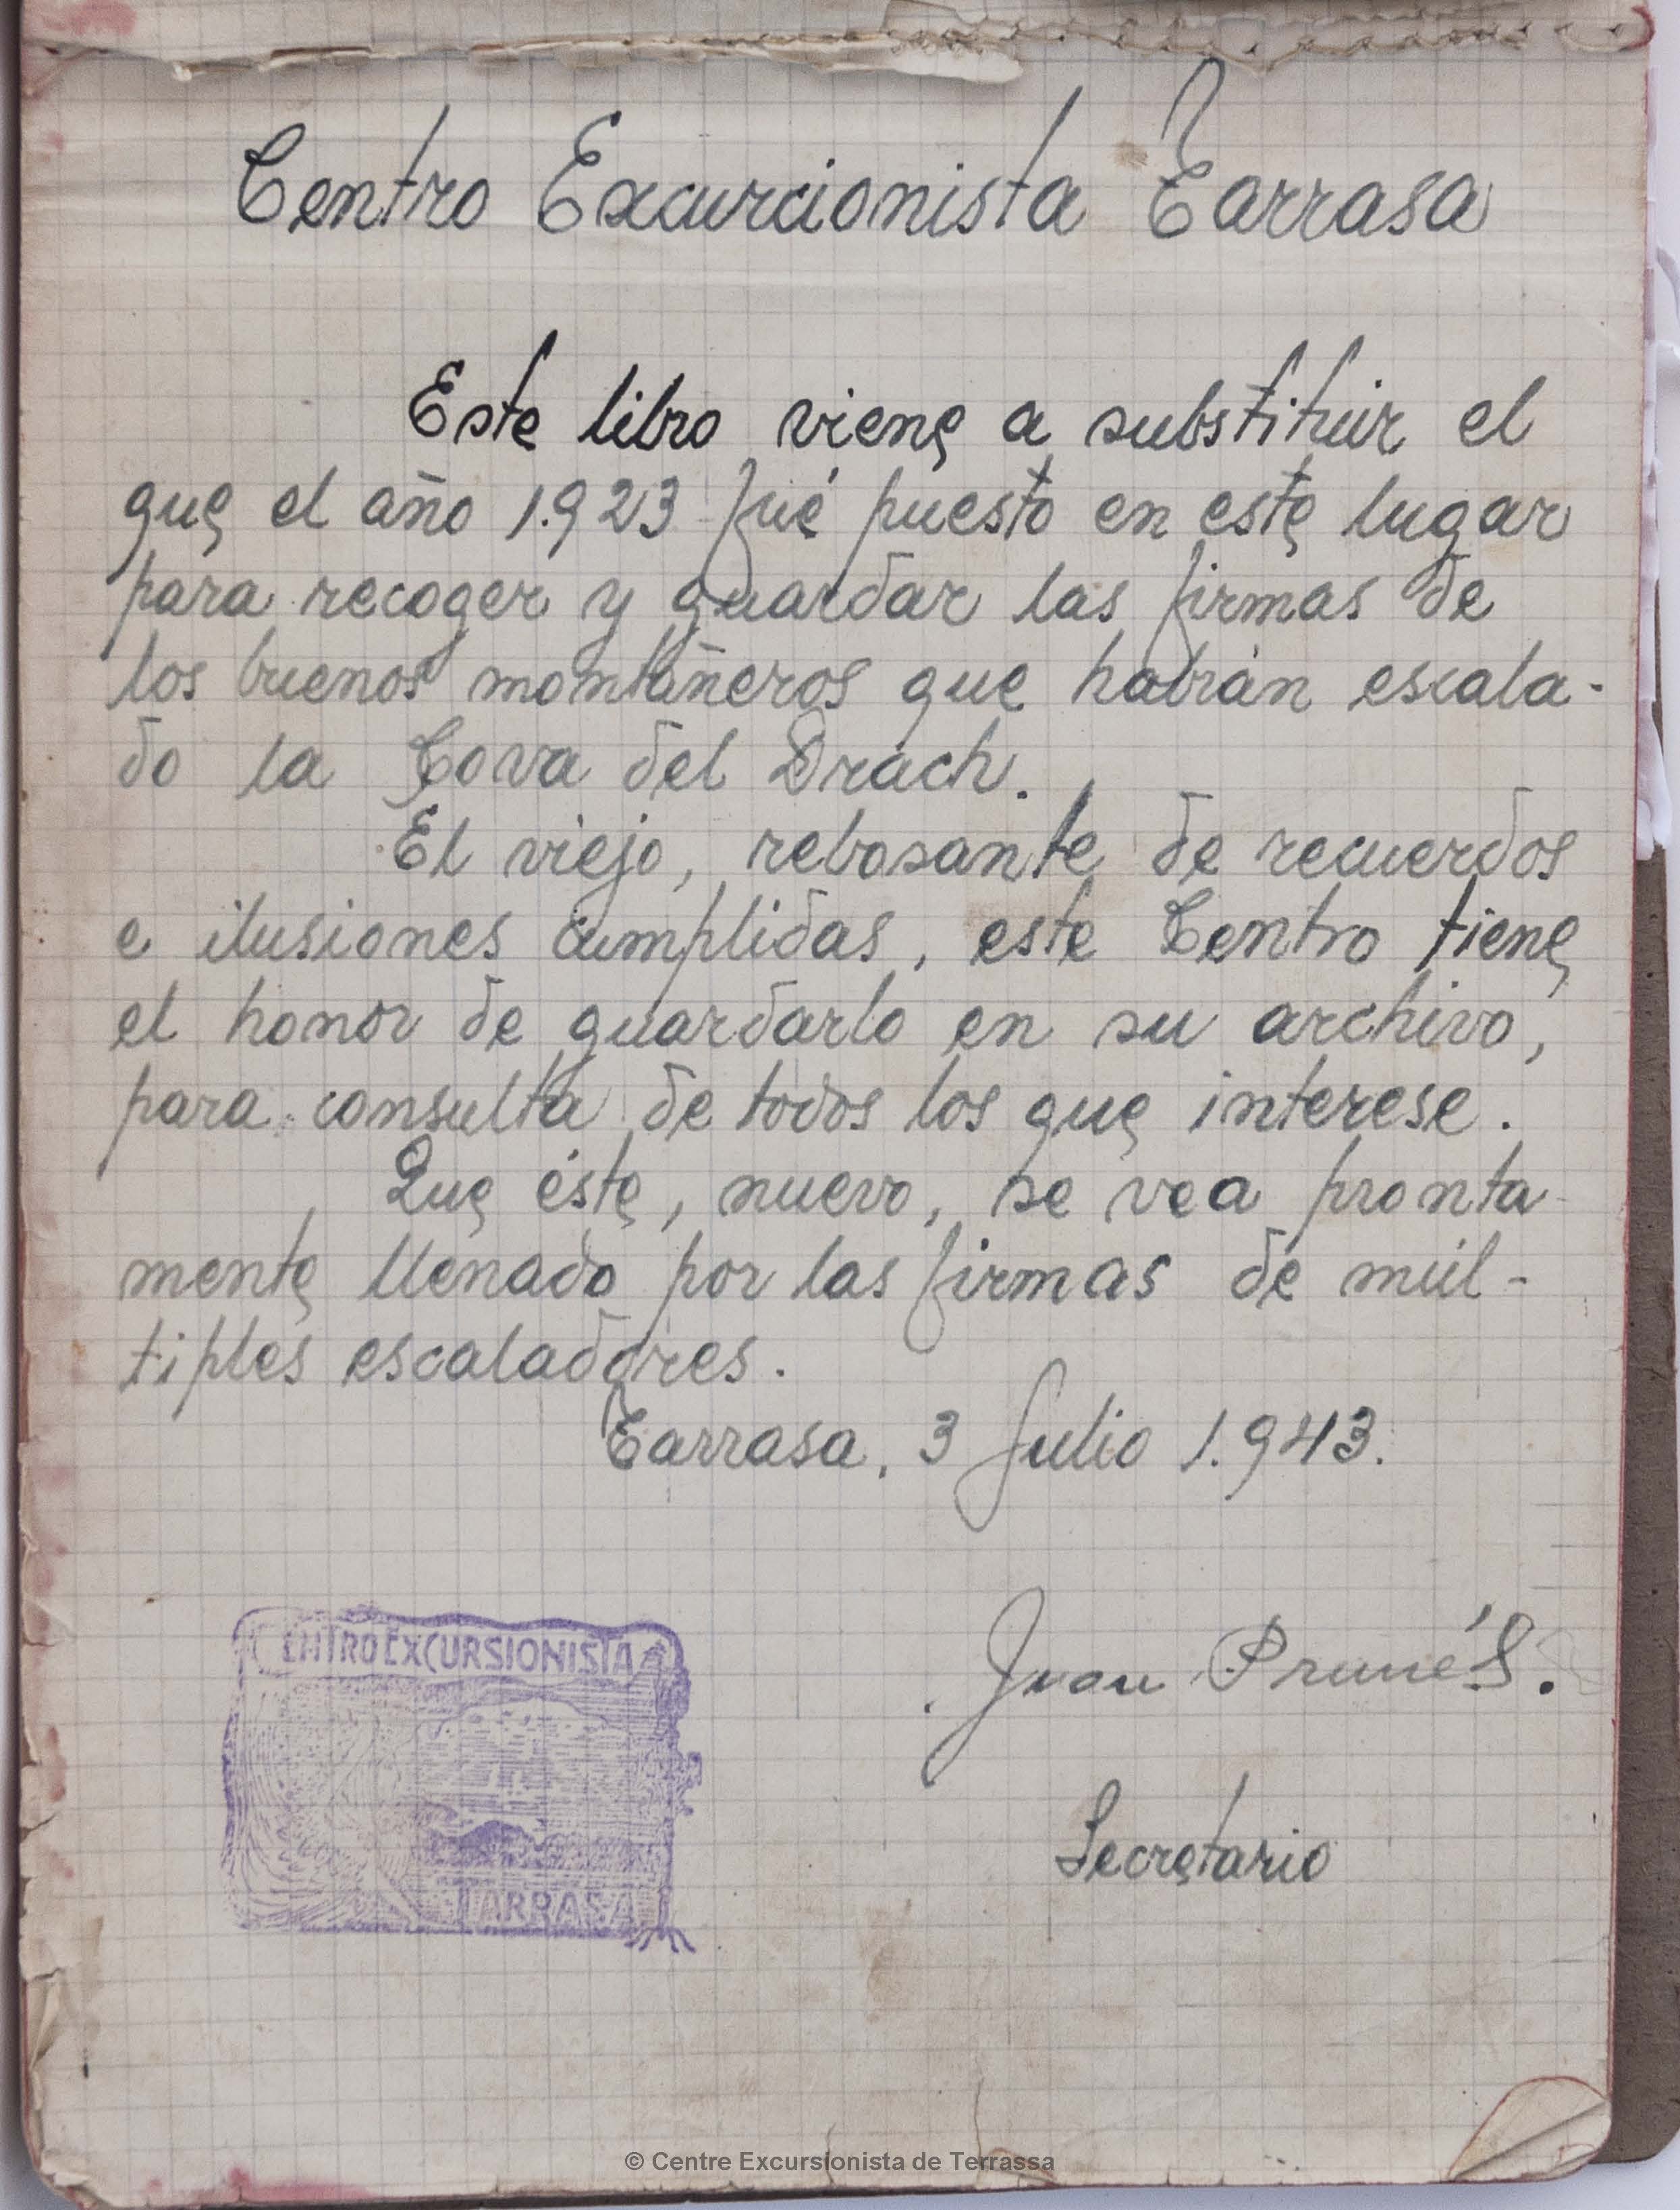 Centro Excurcionista Tarrasa
Este libro viene a substituir el
que el año 1.923 fué puesto en este lugar
para recoger y guardar las firmas de
los buenos montañeros que habrán escala-
do la Cova del Drach.
El viejo, rebosante de recuerdos
e ilusiones cumplidas, este Centro tiene
el honor de guardarlo en su archivo,
para consulta de todos los que interese.
Que éste, nuevo, se vea pronta-
mente llenado por las firmas de múl-
tiples escaladores.
Tarrasa, 3 Julio 1.943.
CENTRO EXCURSIONISTA
Juan Pruné S.
Secretario
TARRASA
© Centre Excursionista de Terrassa